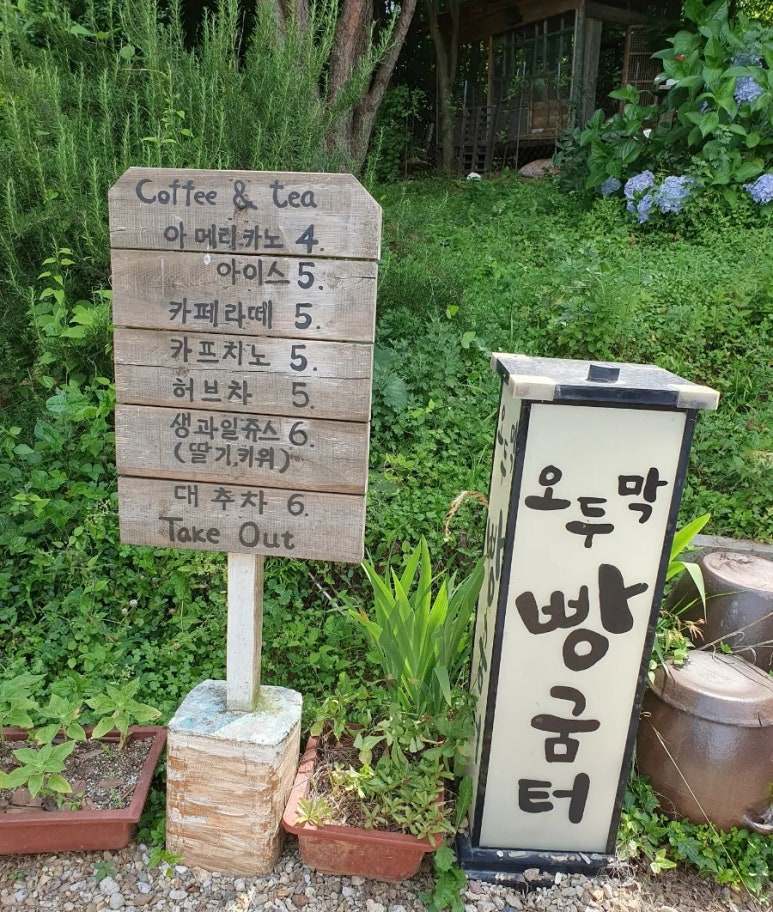 Coffee & tea
아메리카노 4.
아이스 5.
카페라떼 5.
카프치노 5.
허브차 5.
생과일쥬스 6.
(딸기,키위)
대추차 6.
Take Out
오두막
빵
굼
터